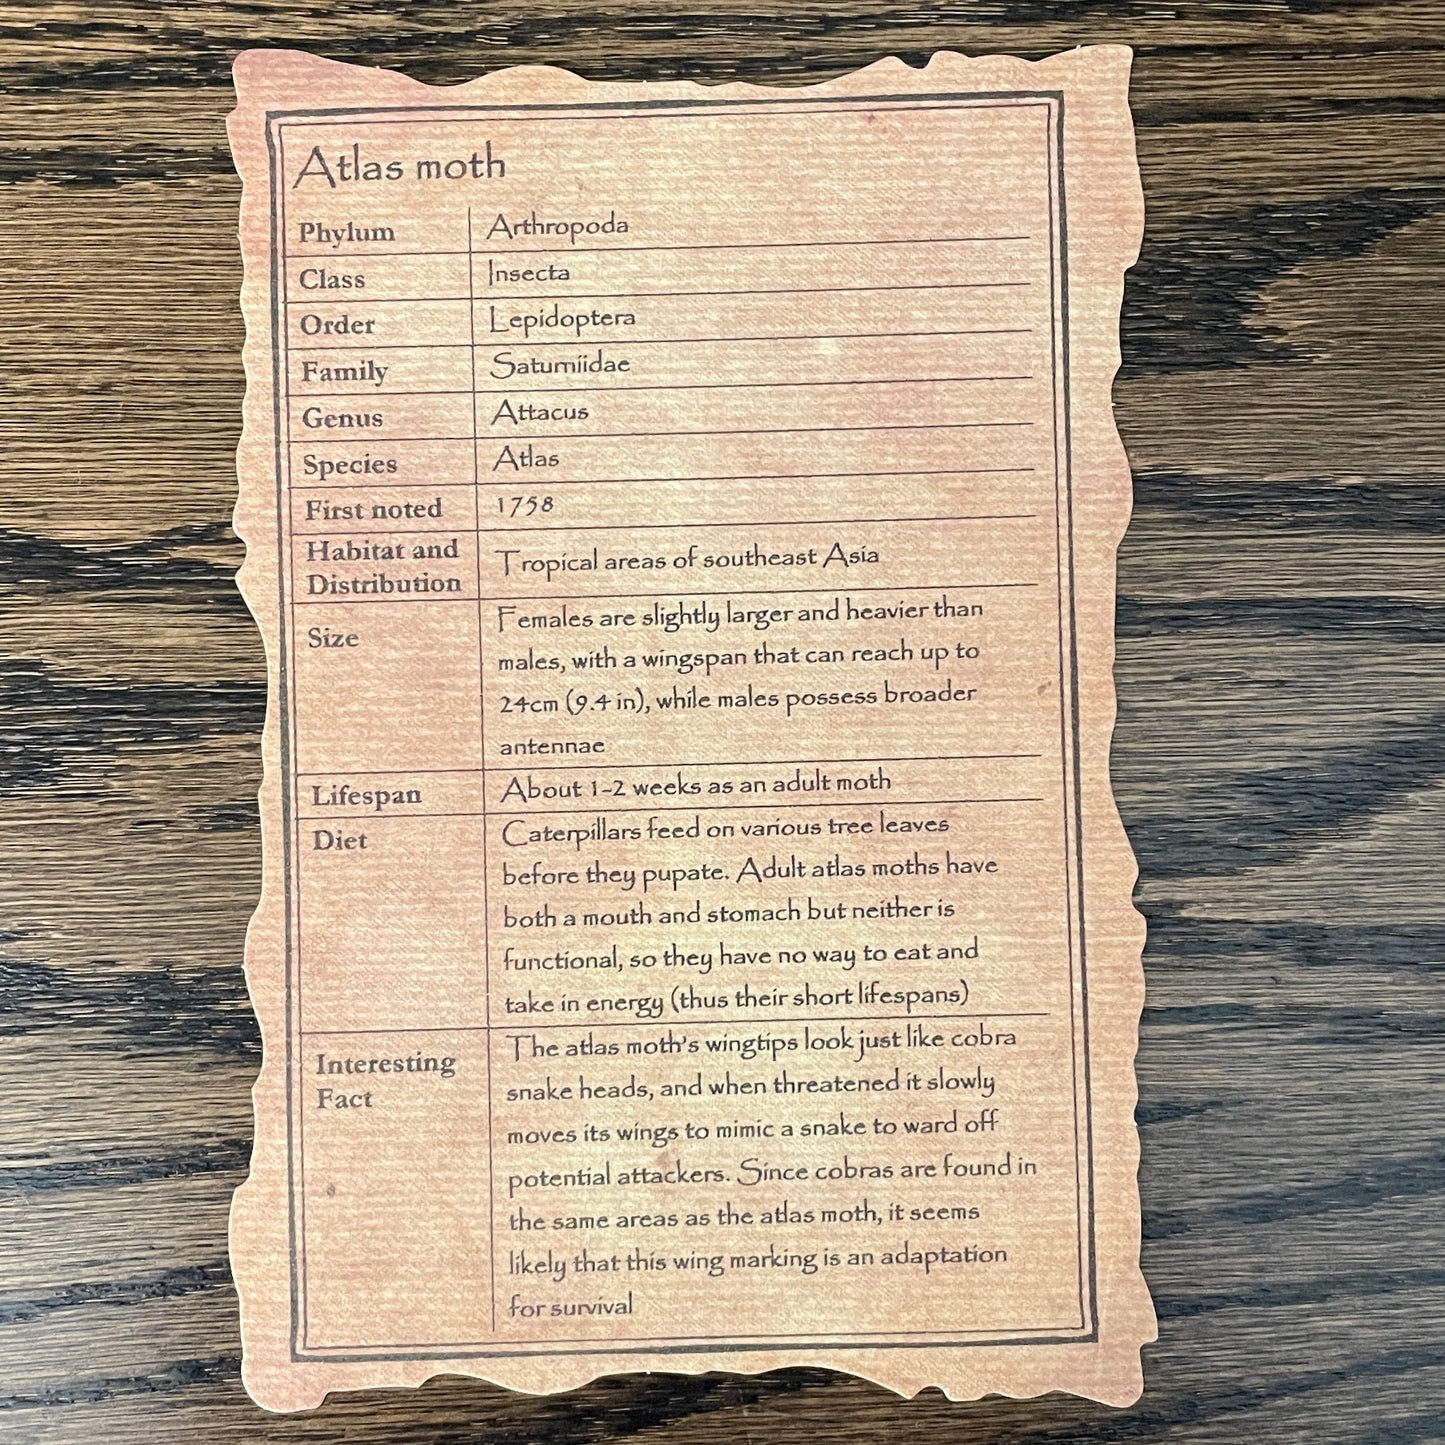 Atlas moth
Phylum Arthropoda
Class Insecta
Order Lepidoptera
Family Saturniidae
Genus Attacus
Species Atlas
First noted 1758
Habitat and
Distribution
Tropical areas of southeast Asia
Size
Females are slightly larger and heavier than
males, with a wingspan that can reach up to
24cm (9.4 in), while males possess broader
antennae
Lifespan About 1-2 weeks as an adult moth
Diet
Caterpillars feed on various tree leaves
before they pupate. Adult atlas moths have
both a mouth and stomach but neither is
functional, so they have no way to eat and
take in energy (thus their short lifespans)
Interesting
Fact
The atlas moth's wingtips look just like cobra
snake heads, and when threatened it slowly
moves its wings to mimic a snake to ward off
potential attackers. Since cobras are found in
the same areas as the atlas moth, it seems
likely that this wing marking is an adaptation
for survival